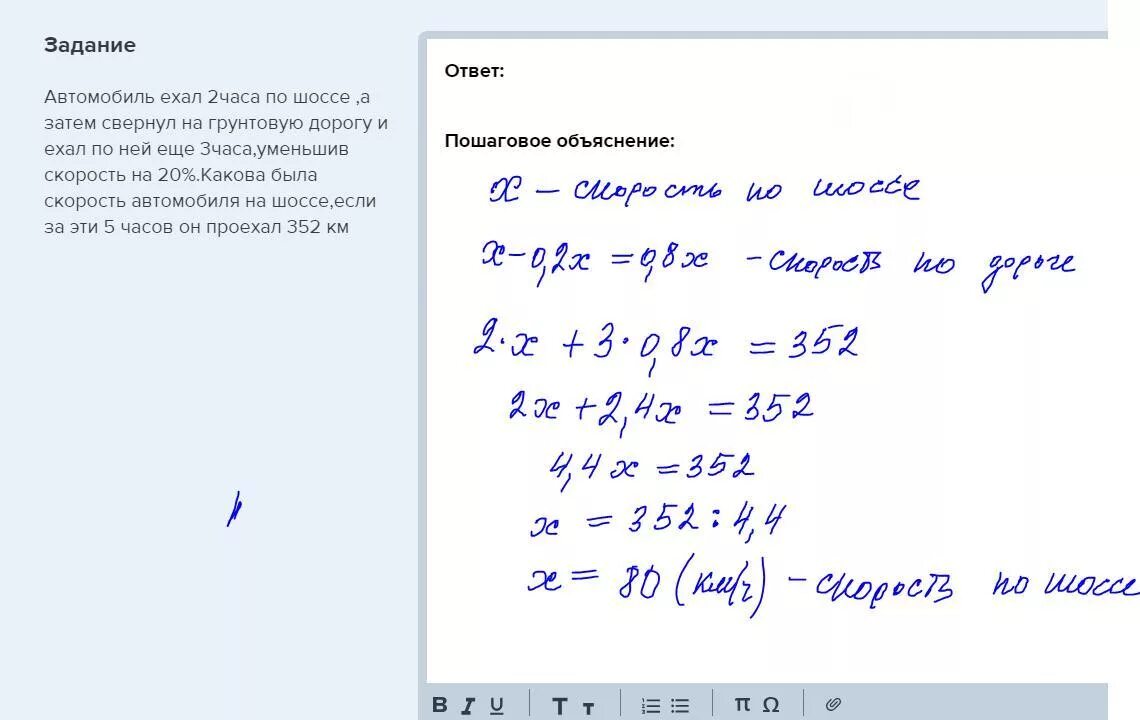 Задание
Автомобиль ехал 2часа по шоссе ,а
затем свернул на грунтовую дорогу и
ехал по ней еще 3часа,уменьшив
скорость на 20%.Какова была
скорость автомобиля на шоссе,если
за эти 5 часов он проехал 352 км
Ответ:
Пошаговое объяснение:
х – скорость по шоссе
х – 0,2х = 0,8х – скорость по дороге
2·х + 3·0,8х = 352
2х + 2,4х = 352
4,4х = 352
х = 352 : 4,4
х = 80 (км/ч) – скорость по шоссе
B I U T т π Ω